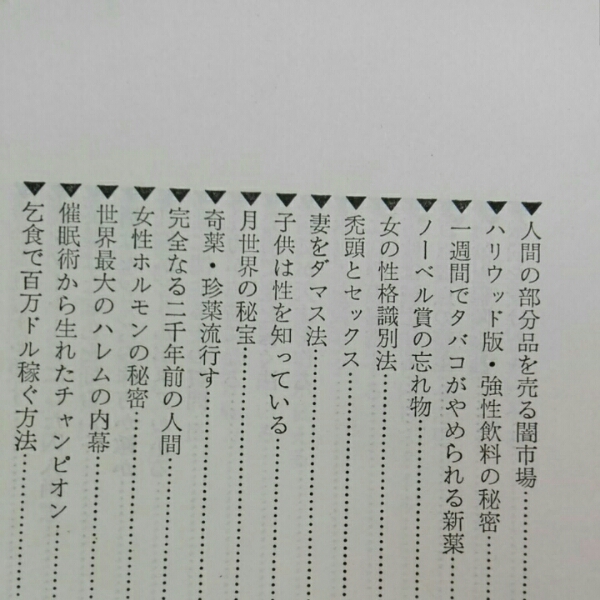 ▼人間の部分品を売る闇市場………
▼ハリウッド版・強性飲料の秘密………
▼一週間でタバコがやめられる新薬………
▼ノーベル賞の忘れ物………
▼女の性格識別法………
▼禿頭とセックス………
▼妻をダマス法………
▼子供は性を知っている………
▼月世界の秘宝………
▼奇薬・珍薬流行す………
▼完全なる二千年前の人間………
▼女性ホルモンの秘密………
▼世界最大のハレムの内幕………
▼催眠術から生れたチャンピオン………
▼乞食で百万ドル稼ぐ方法………